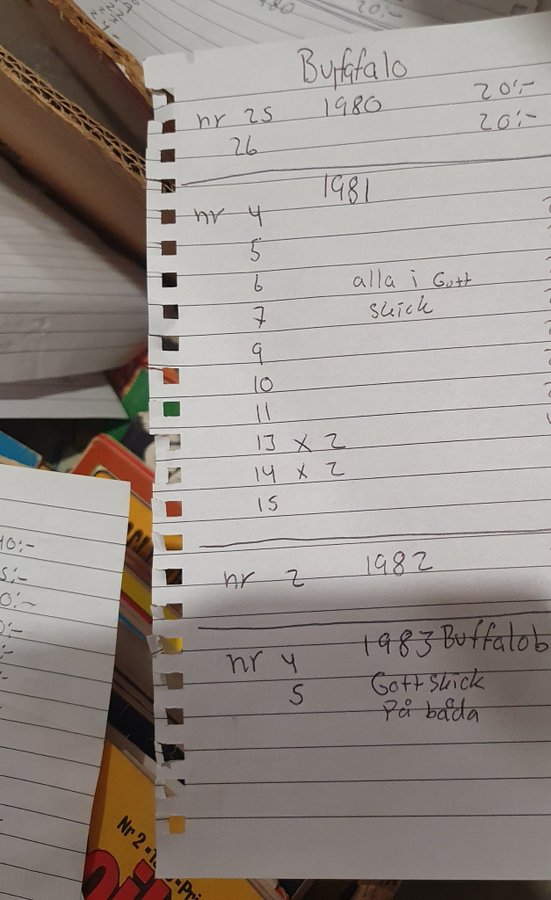 20:-
Buffafalo
nr 25 1980 20:-
26 20:-
1981
nr 4
5
6 alla i Gott
7 skick
9
10
11
13 x 2
14 x 2
15
nr 2 1982
nr 4 1983 Buffalob
5 Gott skick
På båda
Nr 2